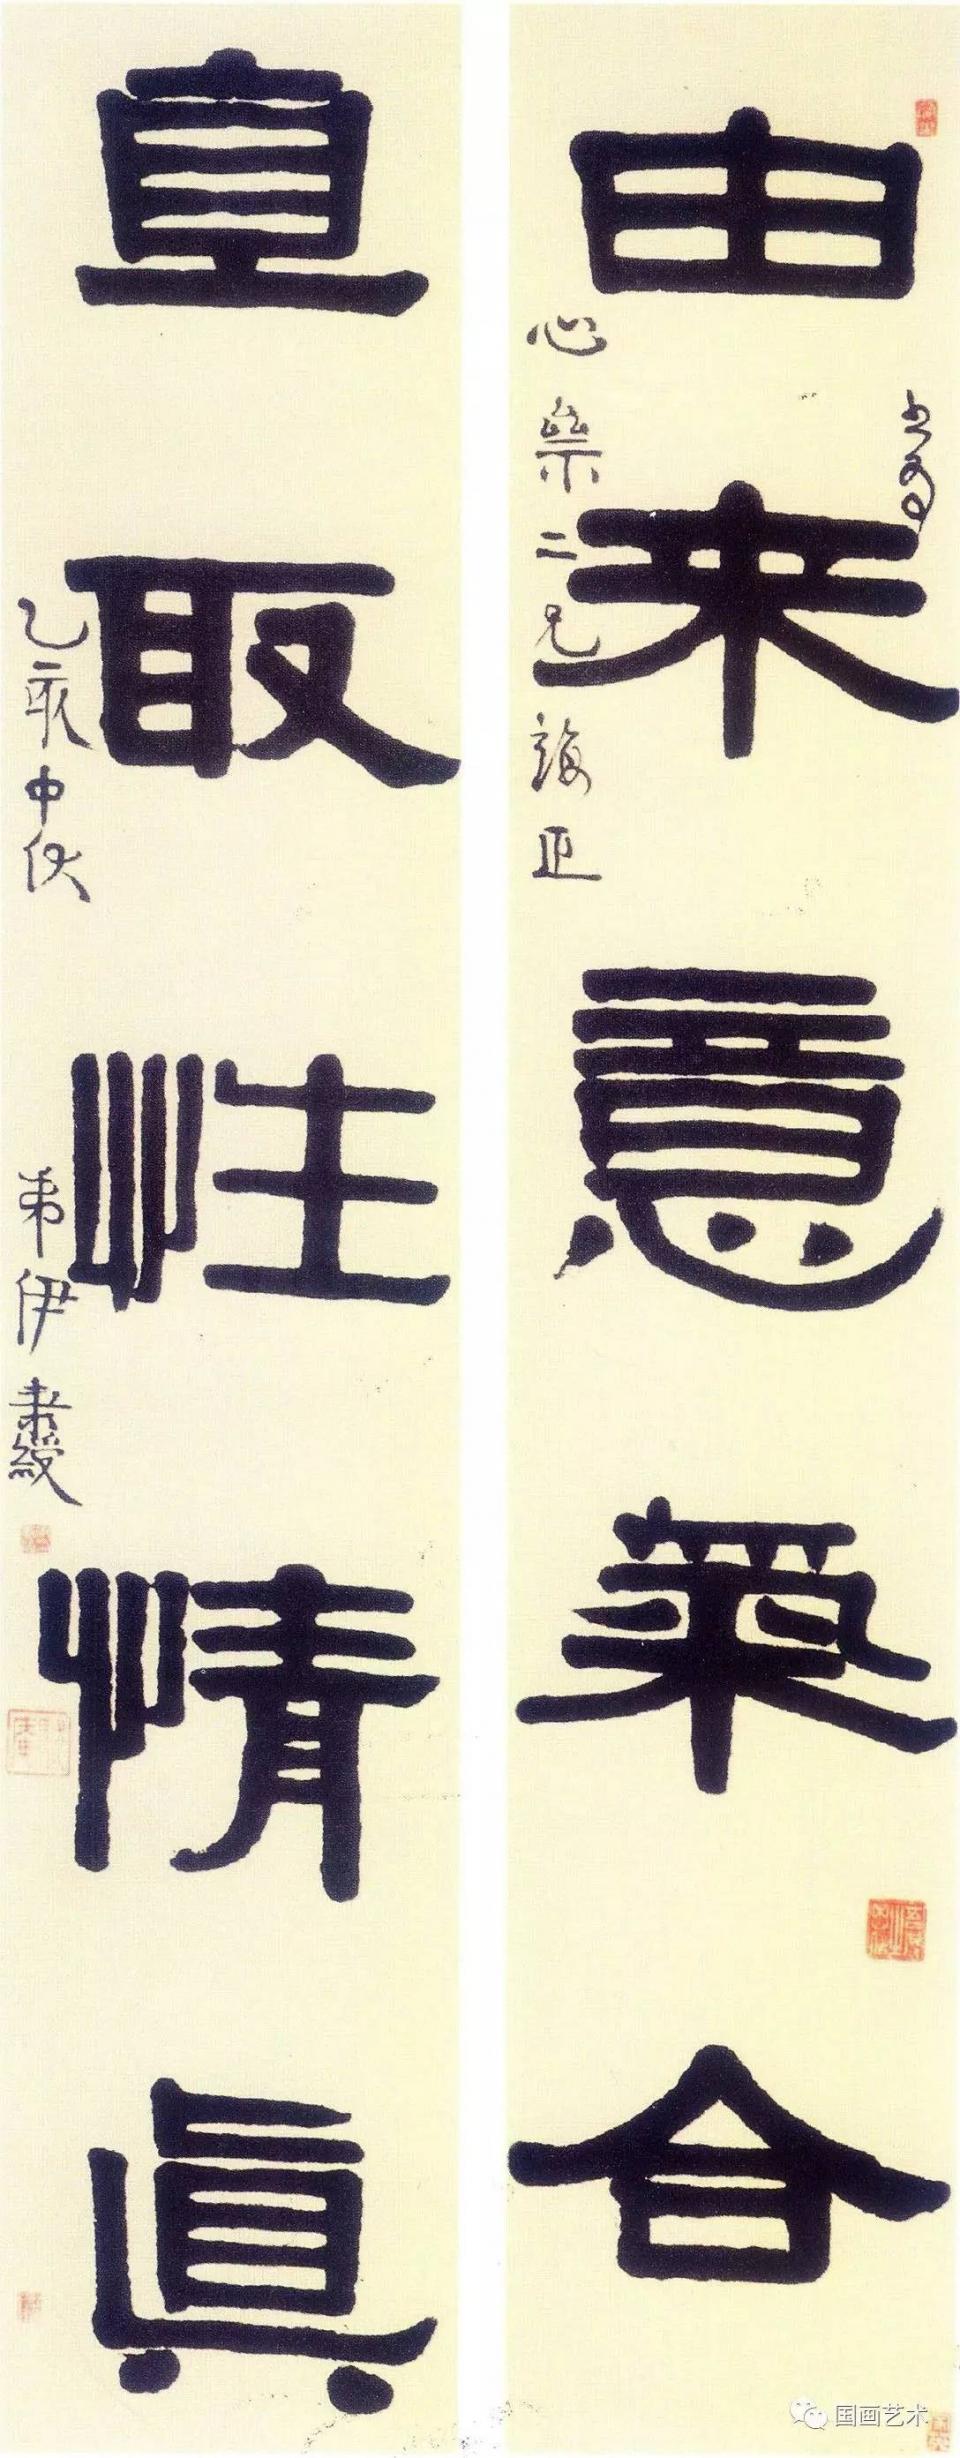 書為
由來意氣合
心 二兄誨正
直取性情真
乙亥中伏 弟伊秉綬
国画艺术